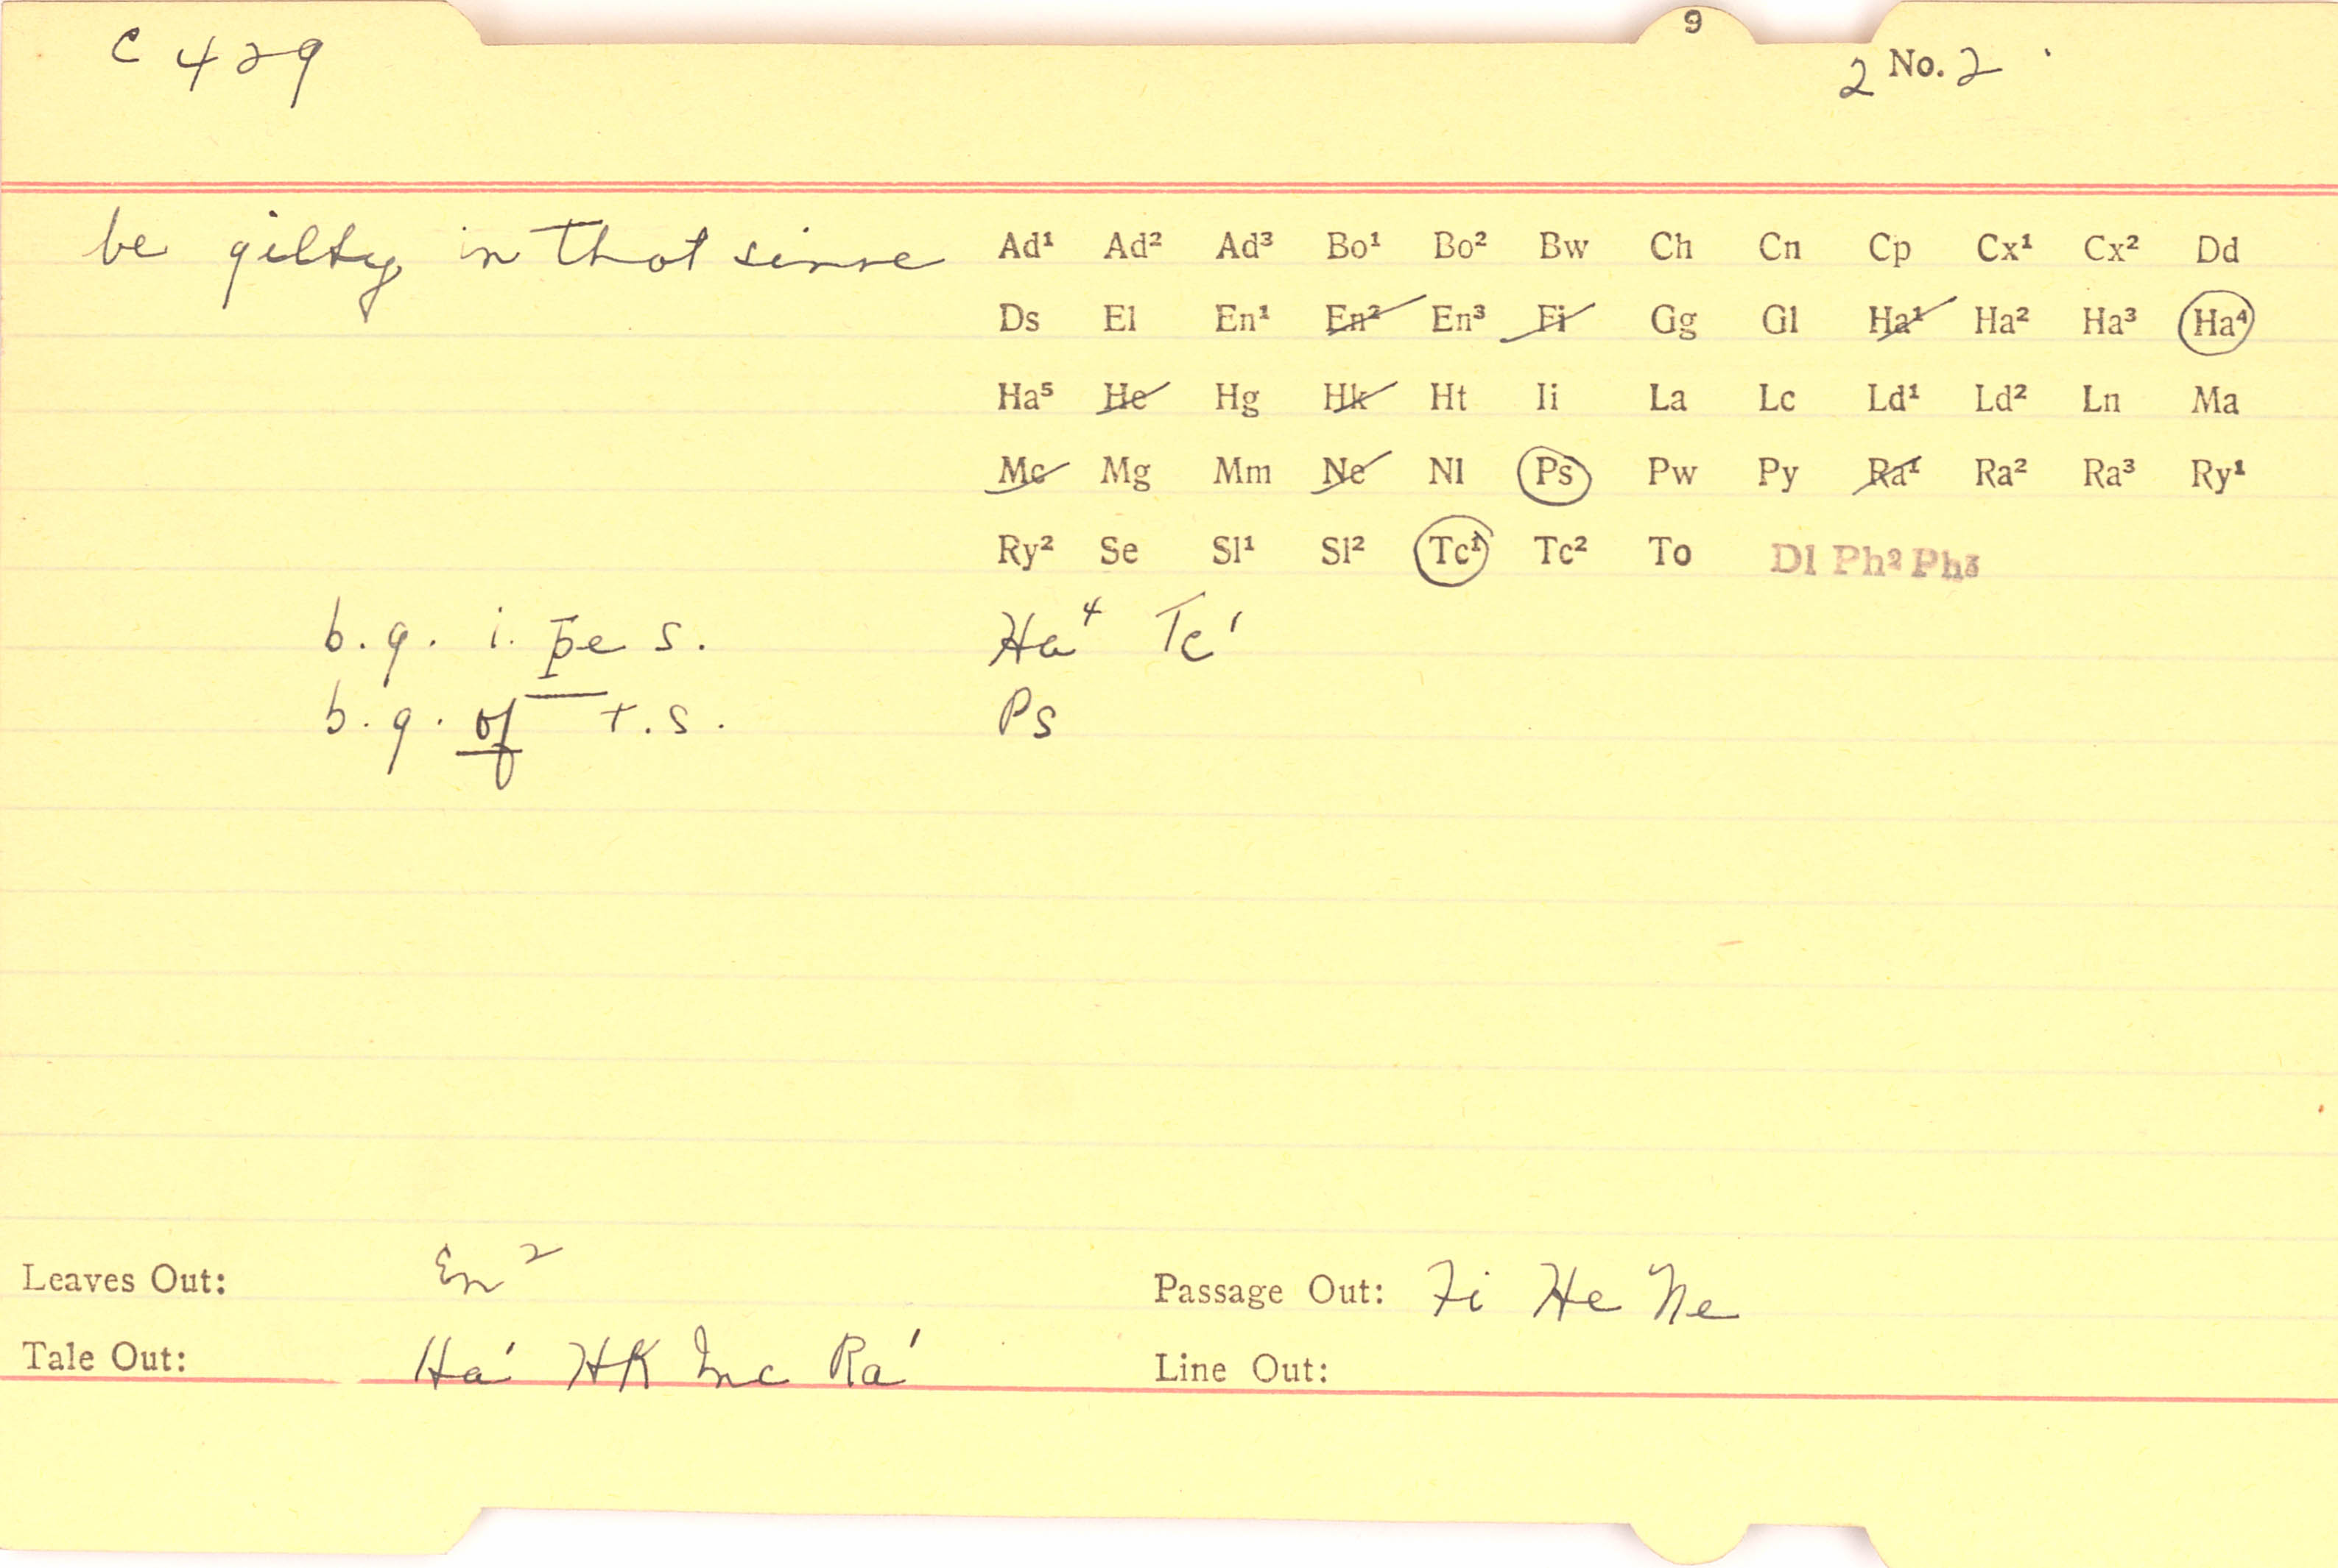 9
C 429
2 No. 2
be gilty in that sinne
Ad¹ Ad² Ad³ Bo¹ Bo² Bw Ch Cn Cp Cx¹ Cx² Dd
Ds El En¹ En² En³ Fi Gg Gl Ha¹ Ha² Ha³ Ha⁴
Ha⁵ He Hg Hk Ht Ii La Lc Ld¹ Ld² Ln Ma
Mc Mg Mm Ne Nl Ps Pw Py Ra¹ Ra² Ra³ Ry¹
Ry² Se Sl¹ Sl² Tc¹ Tc² To Dl Ph² Ph³
b. g. i. þe s. Ha⁴ Tc¹
b. g. of t. s. Ps
Leaves Out: En² Passage Out: Fi He Ne
Tale Out: Ha¹ HK Mc Ra¹ Line Out: